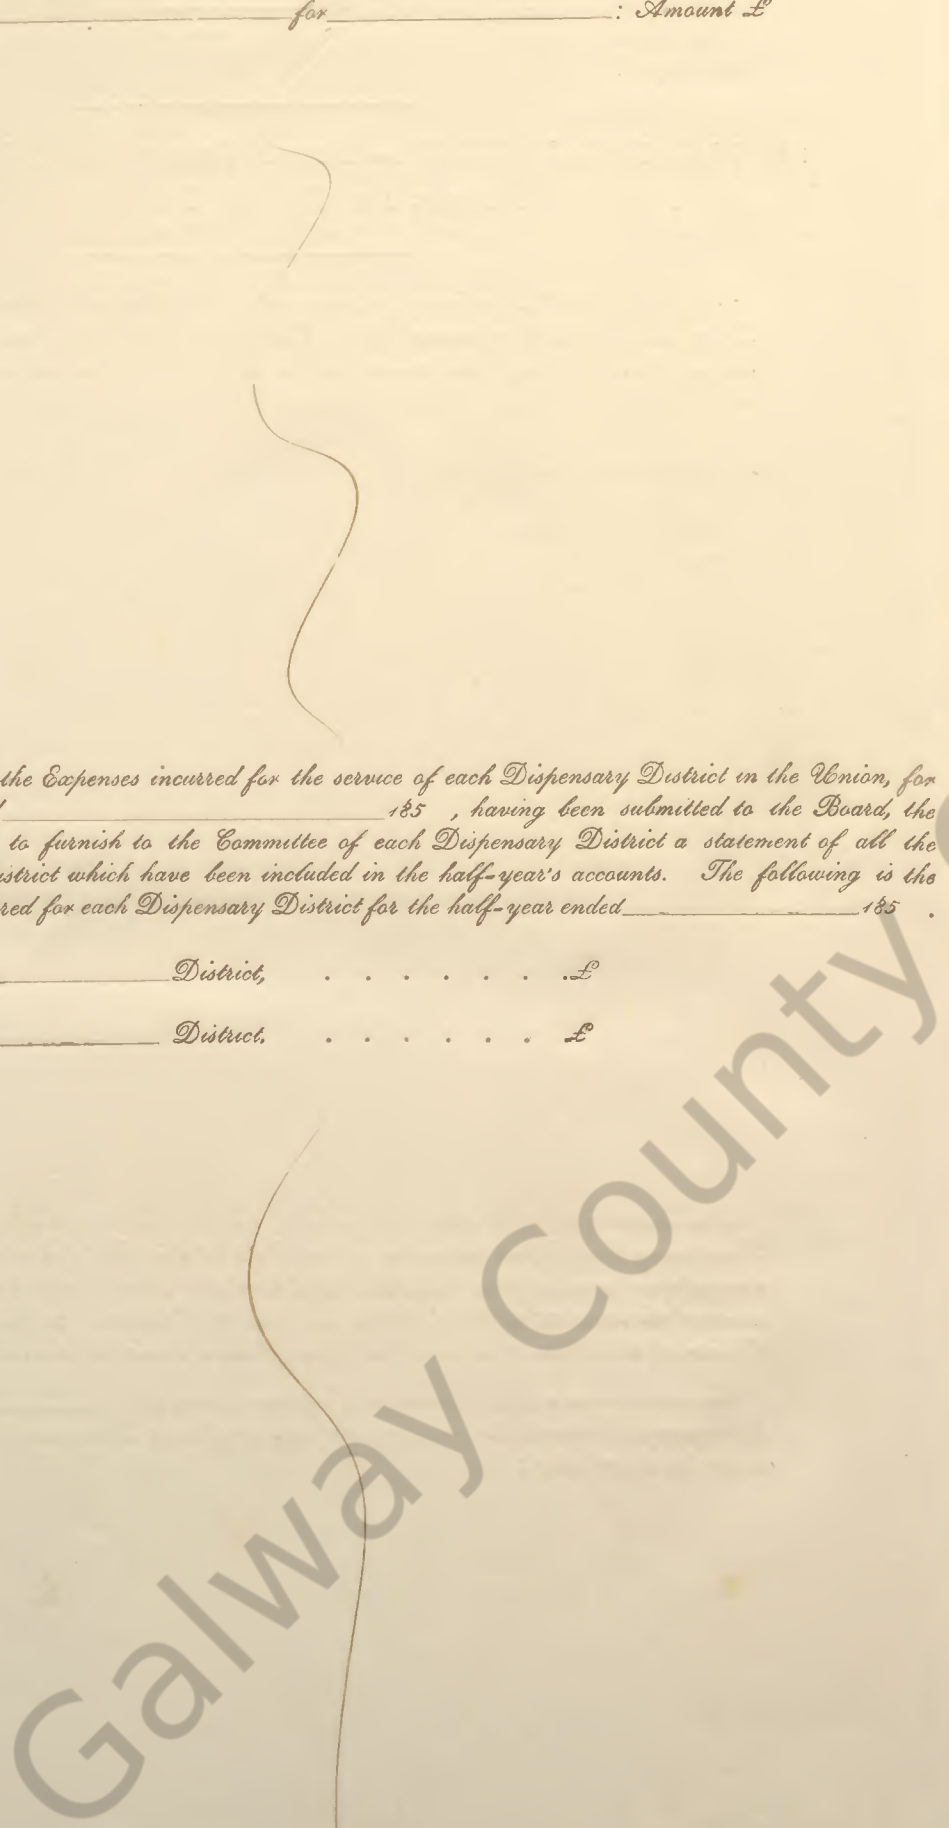 for : Amount £
the Expenses incurred for the service of each Dispensary District in the Union, for
185 , having been submitted to the Board, the
to furnish to the Committee of each Dispensary District a statement of all the
istrict which have been included in the half-year's accounts. The following is the
red for each Dispensary District for the half-year ended 185 .
District, . . . . . . . £
District. . . . . . . £
Galway County